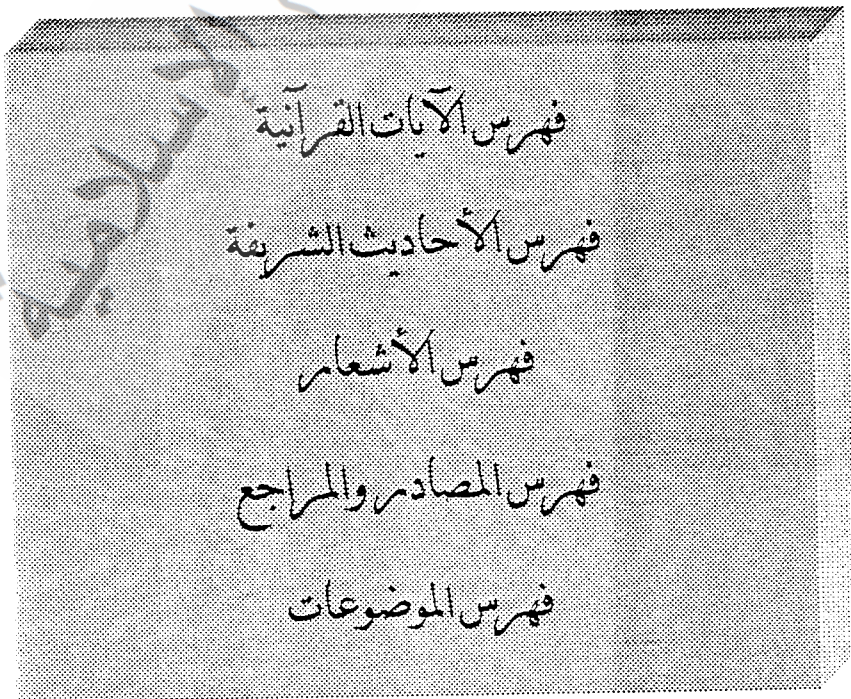 فهرس الآيات القرآنية
فهرس الأحاديث الشريفة
فهرس الأشعار
فهرس المصادر والمراجع
فهرس الموضوعات
الإسلامية